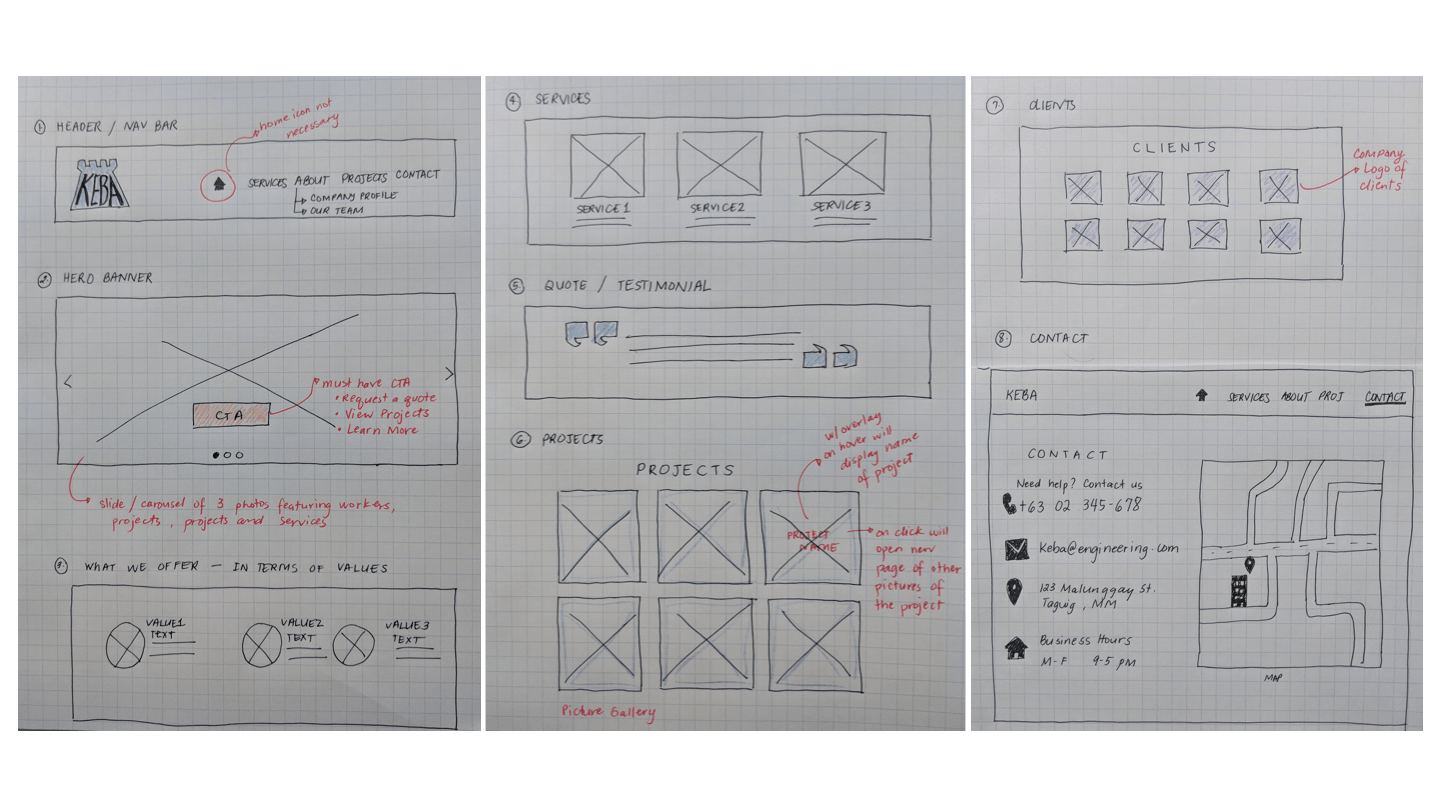 1. HEADER / NAV BAR
home icon not
necessary
KEBA
SERVICES ABOUT PROJECTS CONTACT
COMPANY PROFILE
OUR TEAM
2. HERO BANNER
<
>
must have CTA
• Request a quote
• View Projects
• Learn More
CTA
slide / carousel of 3 photos featuring workers,
projects, projects and services
3. WHAT WE OFFER — IN TERMS OF VALUES
VALUE1
TEXT
VALUE2
TEXT
VALUE3
TEXT
4. SERVICES
SERVICE 1
SERVICE 2
SERVICE 3
5. QUOTE / TESTIMONIAL
6. PROJECTS
w/ overlay
on hover will
display name
of project
PROJECTS
PROJECT
NAME
on click will
open new
page of other
pictures of
the project
Picture Gallery
7. CLIENTS
CLIENTS
Company
Logo of
clients
8. CONTACT
KEBA
SERVICES ABOUT PROJ CONTACT
CONTACT
Need help? Contact us
+63 02 345-678
Keba@engineering.com
123 Malunggay St.
Taguig, MM
Business Hours
M-F 9-5 PM
MAP